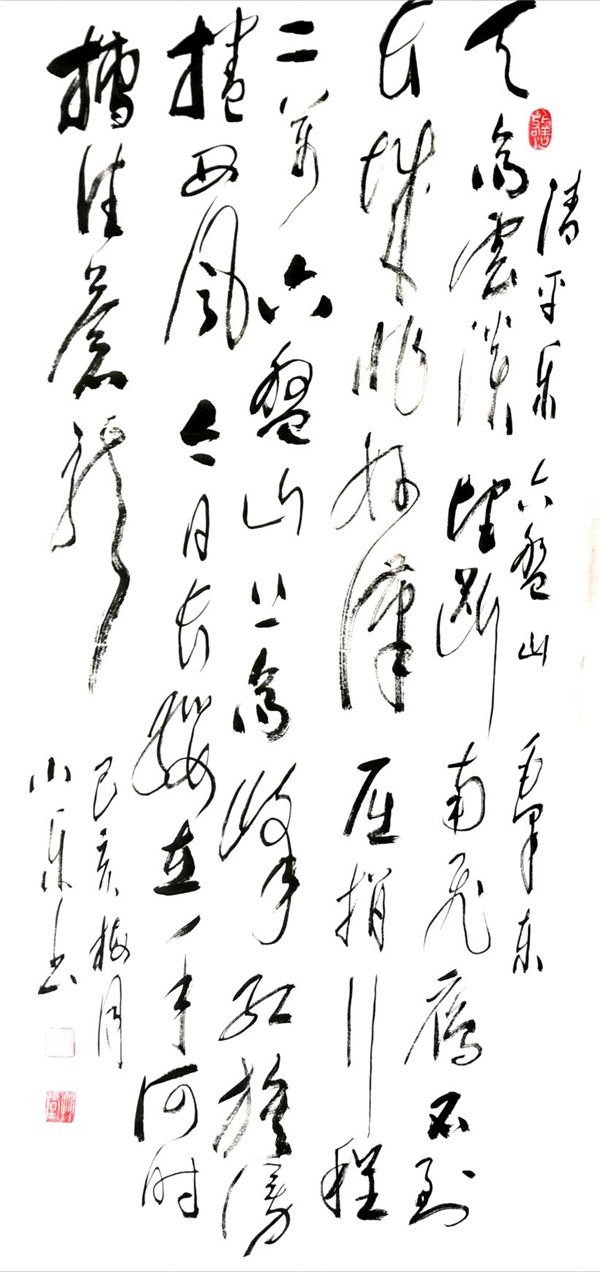 清平乐 六盘山 毛泽东
天高雲淡 望断南飞雁 不到
长城非好漢 屈指行程
二萬 六盘山上高峰 红旗漫
捲西风 今日长缨在手 何时
缚住蒼龙
己亥梅月
小乐书